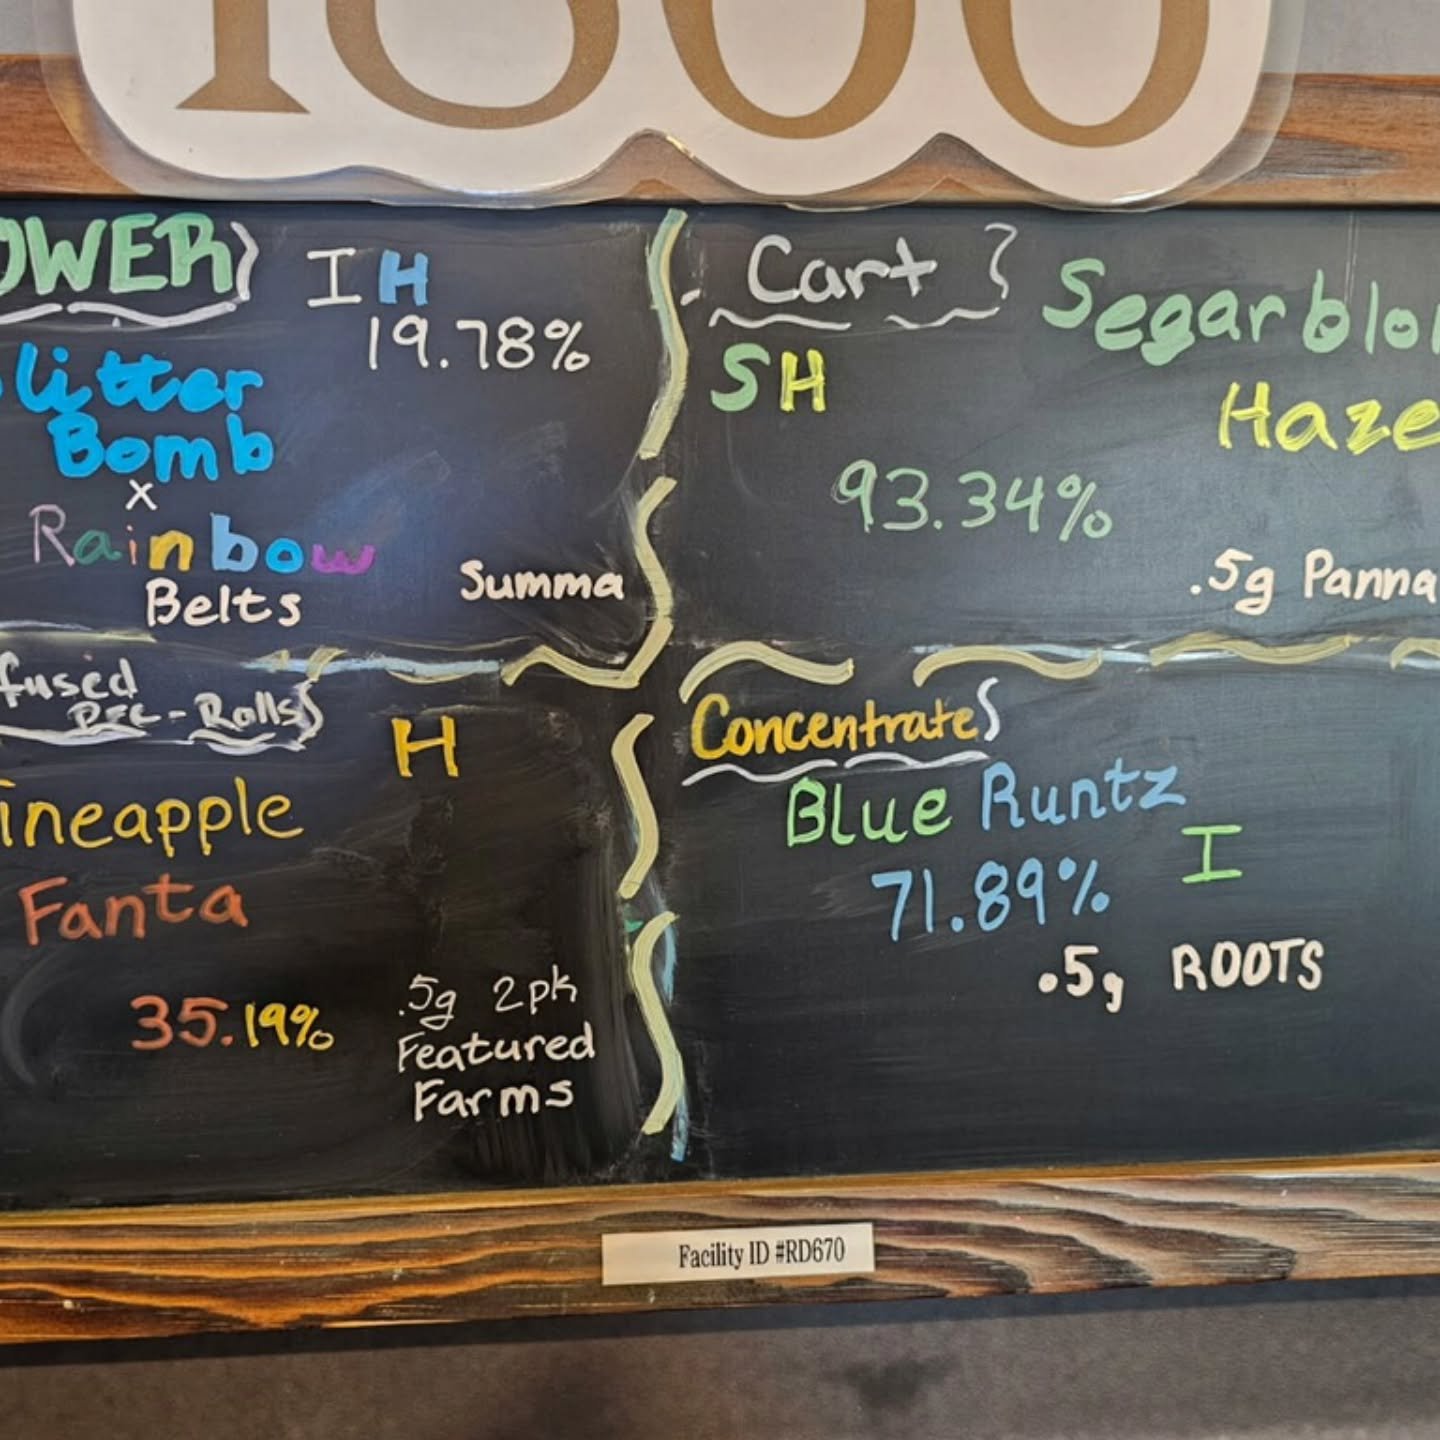 1800
OWER}
I H
19.78%
litter
Bomb
x
Rainbow
Belts
Summa
Cart }
SH
Segarblo
Haze
93.34%
.5g Panna
fused
Pre-Rolls}
H
ineapple
Fanta
35.19%
.5g 2pk
Featured
Farms
Concentrate}
Blue Runtz
71.89%
I
.5g ROOTS
Facility ID #RD670